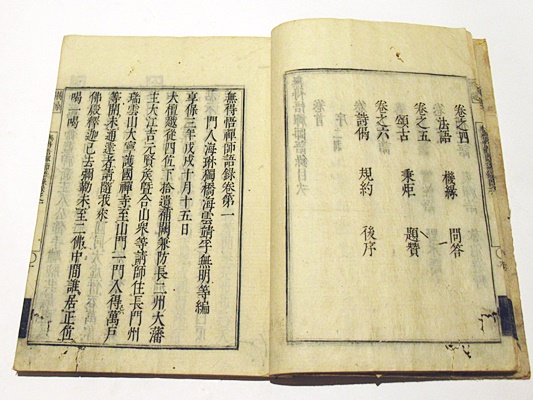 卷之四
法語 機緣 問答
卷之五
頌古 秉炬 題贊
卷之六
詩偈 規約 後序
無得悟禪師語錄卷第一
門人海琳獨橋海雲靖宇無明等編
享保三年戊戌十月十五日
大檀越從四位下拾遺補闕兼防長二州大藩
主大江吉元賢侯暨合山衆等請師住長門州
瑞雲山大寧護國禪寺至山門一門入得萬戸
等開未通達者請隨我來
佛殿釋迦已去彌勒未至二佛中間誰居正位
喝一喝